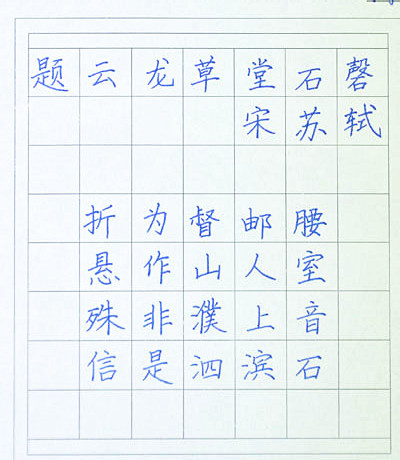 题云龙草堂石磬
宋苏轼
折为督邮腰
悬作山人室
殊非濮上音
信是泗滨石